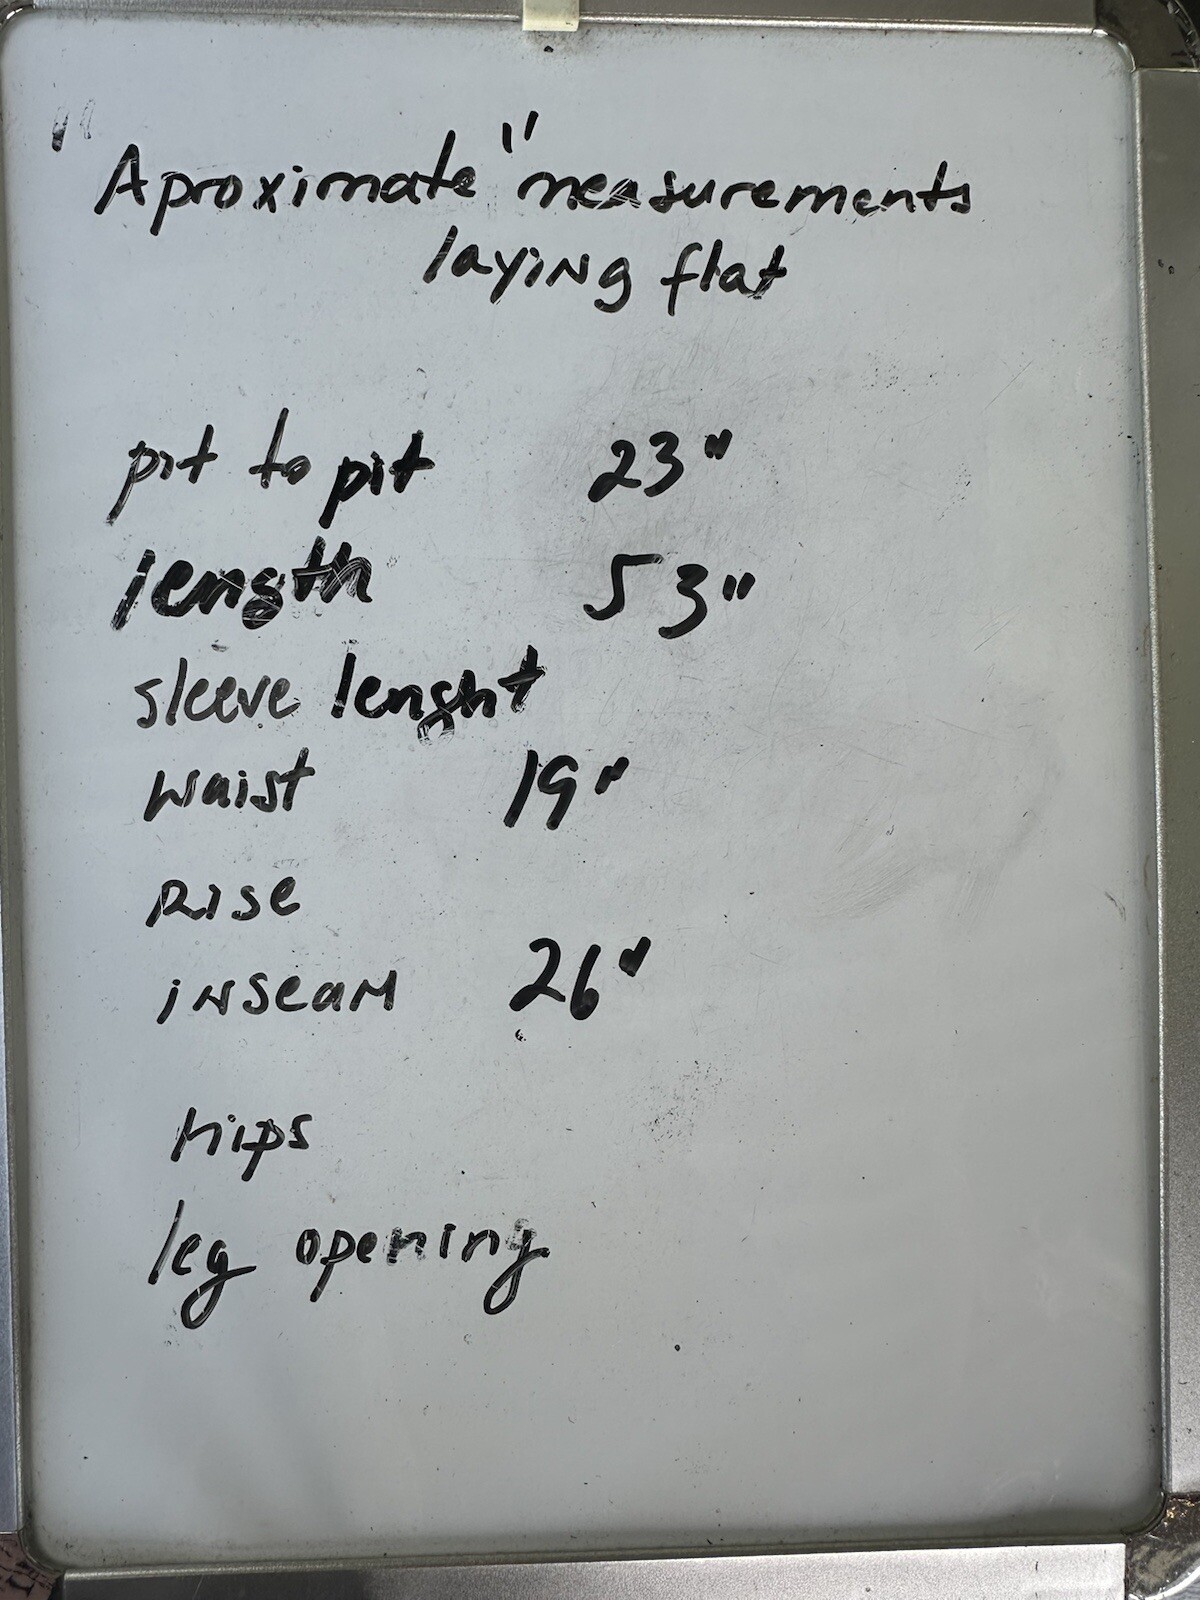 "Aproximate" measurements
laying flat
pit to pit 23"
length 53"
sleeve lenght
waist 19"
Rise
inseam 26"
hips
leg opening